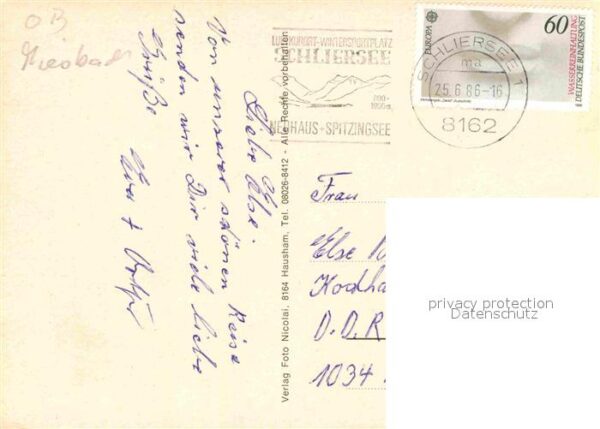 OB
Miesbach
Liebe Else.
Von unserer schönen Reise
senden wir Dir viele liebe
Grüße
Verlag Foto Nicolai, 8164 Hausham, Tel. 08026-8412 - Alle Rechte vorbehalten
LUFTKURORT-WINTERSPORTPLATZ
SCHLIERSEE
800-
NEUHAUS-SPITZINGSEE
SCHLIERSEE 1
ma
25.6.86-16
8162
EUROPA
60
WASSERREINHALTUNG
DEUTSCHE BUNDESPOST
Frau
Else
D.D.R
1034
privacy protection
Datenschutz